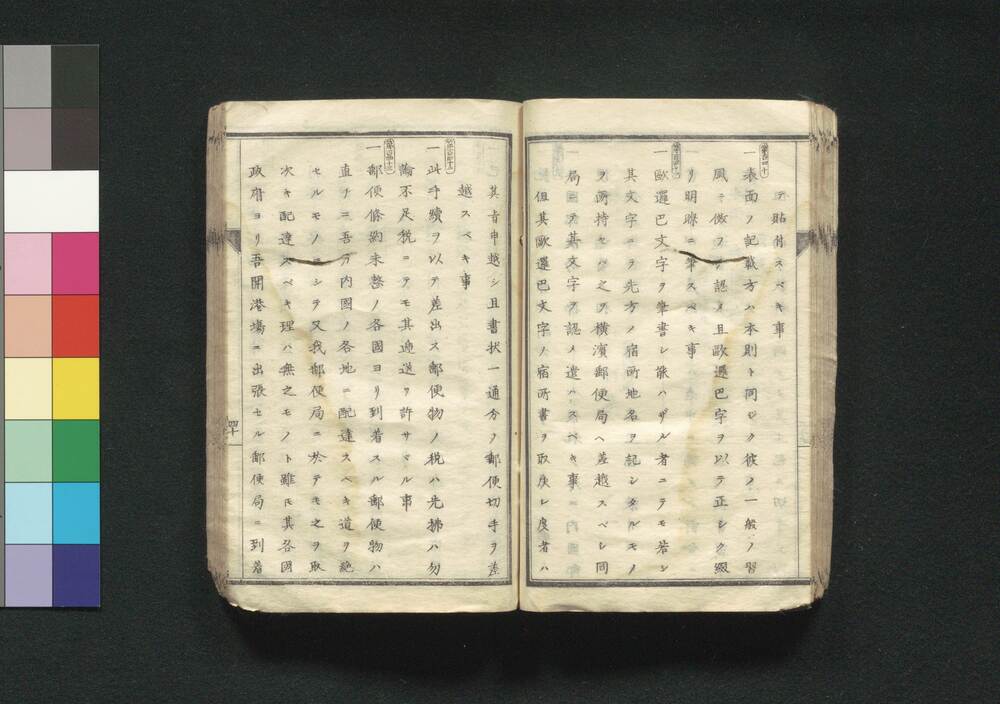 テ貼付スベキ事
一 表面ノ記載方ハ本則ト同ジク彼ノ一般ノ習
風ニ倣フテ認メ且歐邏巴字ヲ以テ正シク綴
リ明瞭ニ筆スベキ事
一 歐邏巴文字ヲ筆書シ能ハザル者ニテモ若シ
其文字ニテ先方ノ宿所地名ヲ記シタルモノ
ヲ所持セバ之ヲ横濱郵便局ヘ差越スベシ同
局ニテ其文字ヲ認メ遣ハスベキ事
但其歐邏巴文字ノ宿所書ヲ取戻シ度者ハ
其旨申越シ且書状一通分ノ郵便切手ヲ差
越スベキ事
一 此手續ヲ以テ差出ス郵便物ノ税ハ先拂ハ勿
論不足税ニテモ其逓送ヲ許サヾル事
一 郵便條約未整ノ各國ヨリ到着スル郵便物ハ
直チニ吾方内國ノ各地ニ配達スベキ道ヲ絶
セルモノニシテ又我郵便局ニ於テモ之ヲ取
次キ配達スベキ理ハ無之モノト雖モ其各國
政府ヨリ吾開港場ニ出張セル郵便局ニ到着
四十